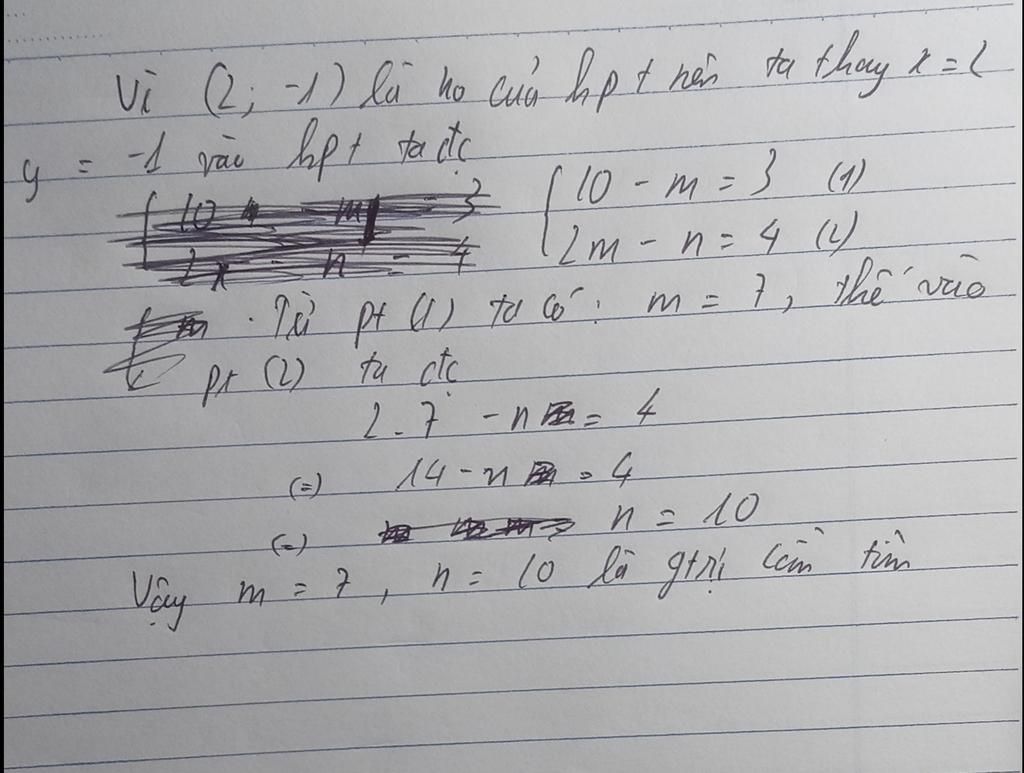 Vì (2; -1) là no của hpt nên ta thay x = 2
y = -1 vào hpt ta đc
{ 10 - m = 3 (1)
2m - n = 4 (2)
. Từ pt (1) ta có: m = 7, thế vào
pt (2) ta đc
2.7 - n = 4
(=) 14 - n = 4
(=) n = 10
Vậy m = 7, n = 10 là gtrị cần tìm